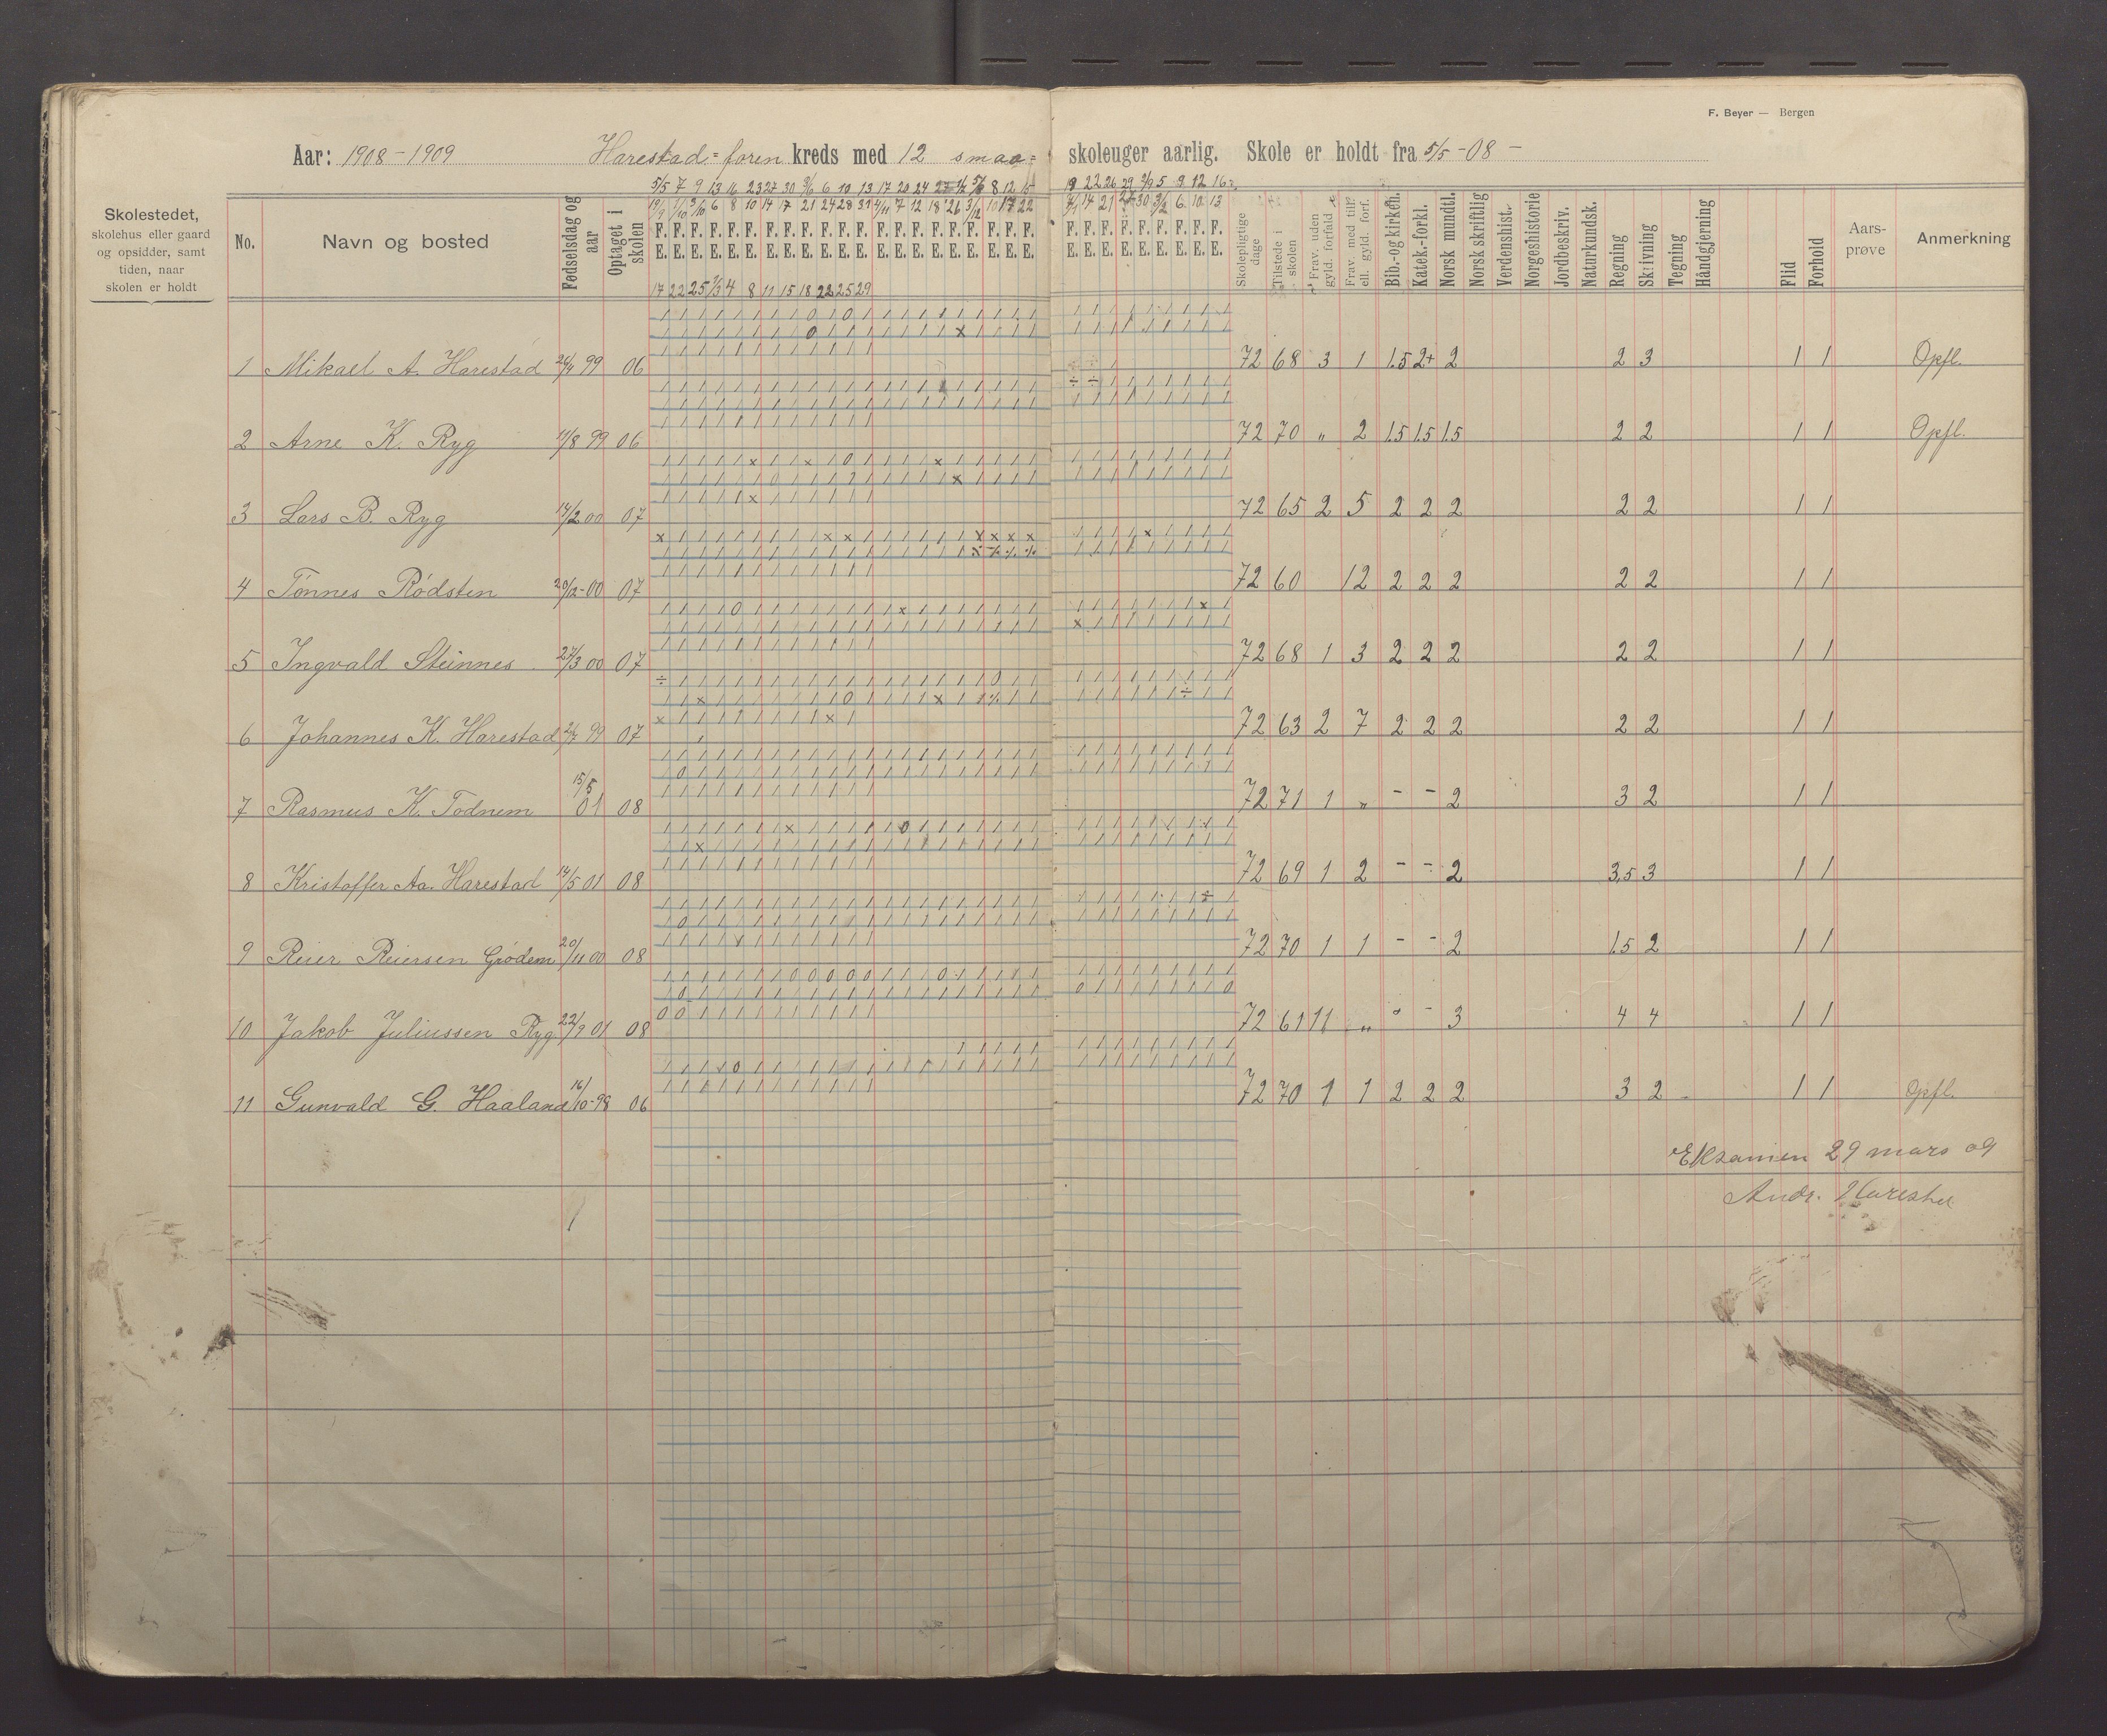 F. Beyer — Bergen
Aar: 1908-1909 Harestad-foren kreds med 12 smaa- skoleuger aarlig. Skole er holdt fra 5/5-08-
Skolestedet,
skolehus eller gaard
og opsidder, samt
tiden, naar
skolen er holdt
No. Navn og bosted Fødselsdag og aar Optaget i skolen
5/5 7 9 13 16 23 27 30 3/6 6 10 13 17 20 24
8 12 15
19 22 26 29 2/9 5 9 12 16
F. F. F. F. F. F. F. F. F. F. F. F. F. F. F. F. F. F. F. F. F. F. F. F. F. F. F. F. F.
E. E. E. E. E. E. E. E. E. E. E. E. E. E. E. E. E. E. E. E. E. E. E. E. E. E. E. E. E.
17 22 25 2/3 4 8 11 15 18 22 25 29
Skolepligtige dage Tilstede i skolen Frav. uden gyld. forfald Frav. med till. ell. gyld. forf. Bib.- og kirkeh. Katek.-forkl. Norsk mundtl. Norsk skriftlig Verdenshist. Norgeshistorie Jordbeskriv. Naturkundsk. Regning Skrivning Tegning Håndgjerning Flid Forhold Aars-prøve Anmerkning
1 Mikael A. Harestad 99 06 72 68 3 1 1.5 2+ 2 2 3 1 1 Opfl.
2 Arne K. Ryg 99 06 72 70 „ 2 1.5 1.5 1.5 2 2 1 1 Opfl.
3 Lars B. Ryg 14/2 00 07 72 65 2 5 2 2 2 2 2 1 1
4 Tønnes Rødsten 20/2-00 07 72 60 12 2 2 2 2 2 1 1
5 Ingvald Steinnes 27/3 00 07 72 68 1 3 2 2 2 2 2 1 1
6 Johannes K. Harestad 99 07 72 63 2 7 2 2 2 2 2 1 1
7 Rasmus K. Todnem 15/5 01 08 72 71 1 „ - - 2 3 2 1 1
8 Kristoffer Aa. Harestad 14/5 01 08 72 69 1 2 - - 2 3,5 3 1 1
9 Reier Reiersen Grødem 20/11 00 08 72 70 1 1 - - 2 1.5 2 1 1
10 Jakob Juliussen Ryg 22/9 01 08 72 61 11 „ - - 3 4 4 1 1
11 Gunvald G. Haaland 16/10-98 06 72 70 1 1 2 2 2 3 2 - 1 1 Opfl.
Eksamen 29 mars 09
Andr. Harestad